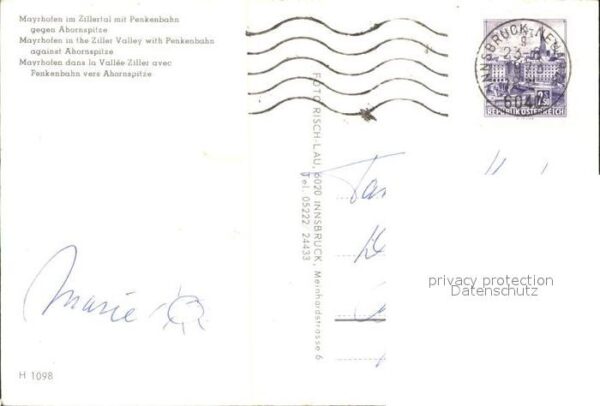 Mayrhofen im Zillertal mit Penkenbahn
gegen Ahornspitze
Mayrhofen in the Ziller Valley with Penkenbahn
against Ahornspitze
Mayrhofen dans la Vallée Ziller avec
Penkenbahn vers Ahornspitze
Marie
H 1098
FOTO RISCH-LAU, 6020 INNSBRUCK, Meinhardstrasse 6
Tel. 05222 24433
INNSBRUCK-NEUARZL
REPUBLIK ÖSTERREICH
privacy protection
Datenschutz